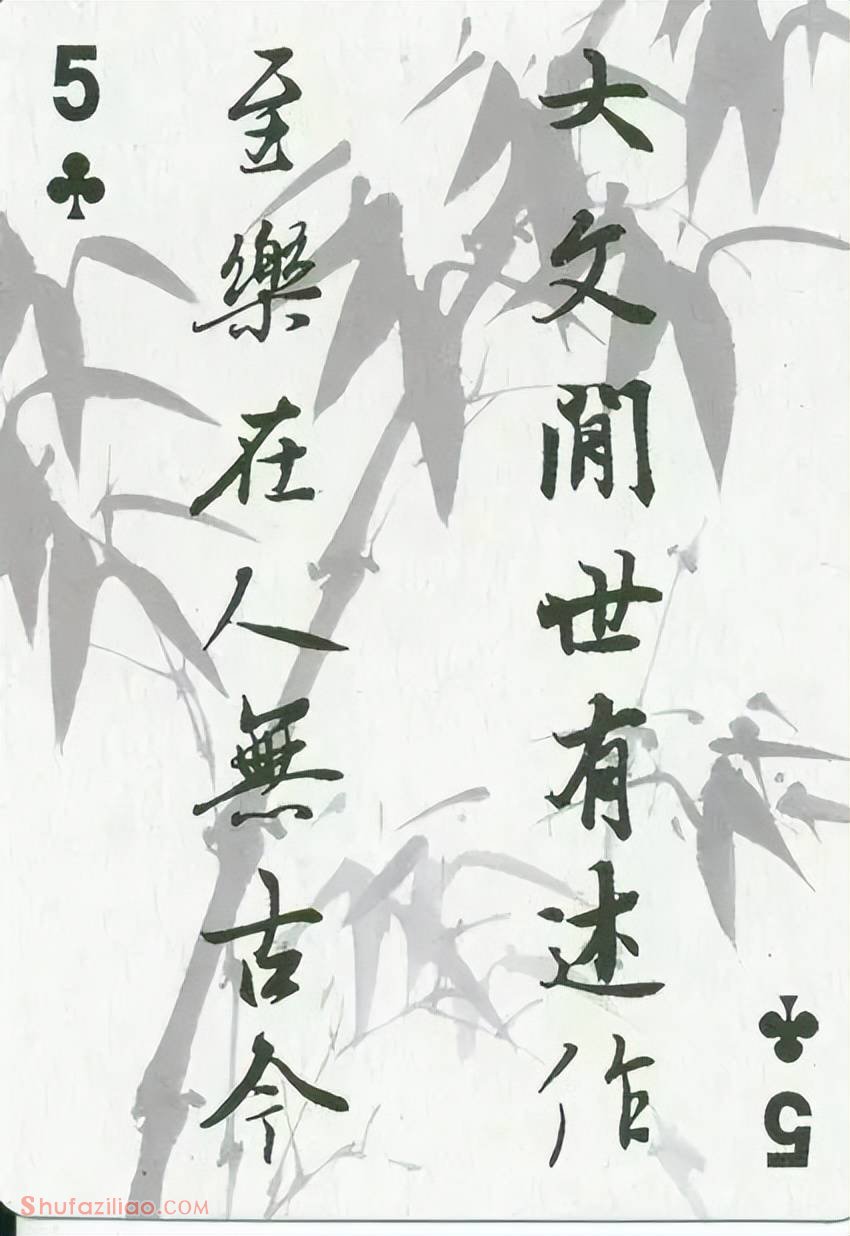 5
大文閒世有述作
至樂在人無古今
5
Shufaziliao.COM